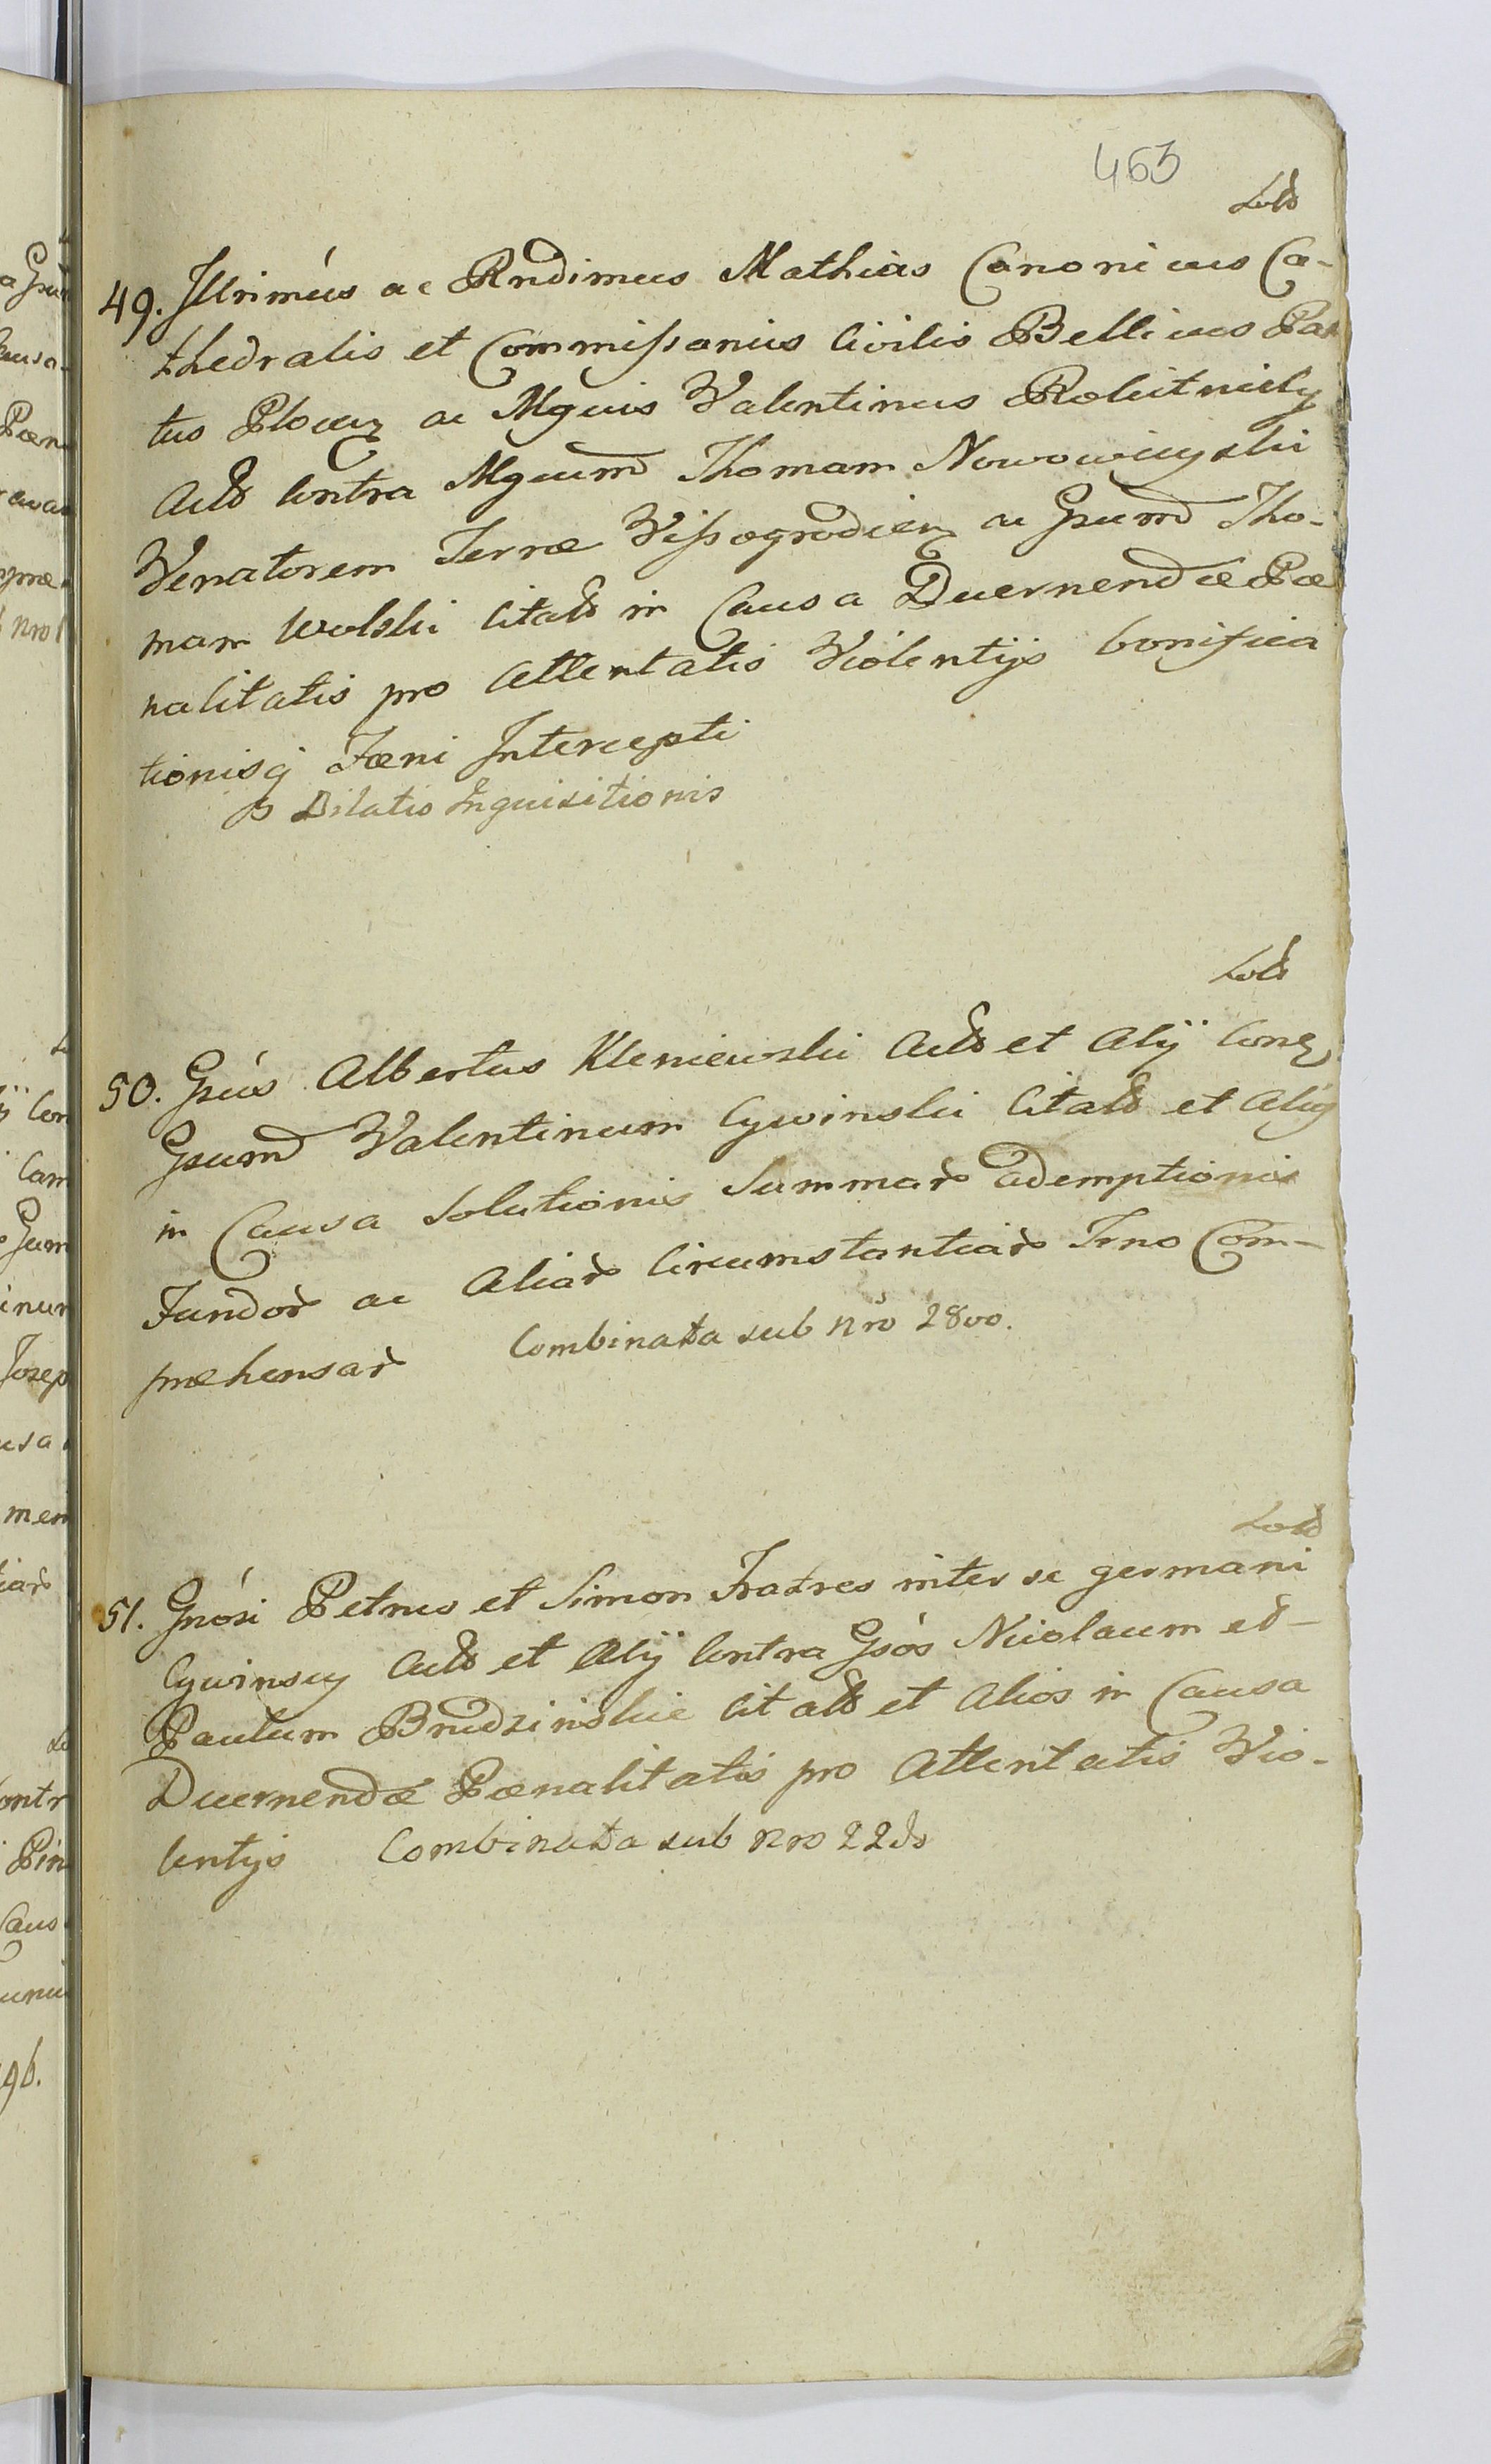 463
49. Jllrimús ac Rndimus Mathias Canonicus Ca-
thedralis et Commissarius Civilis Bellicus Pala
tus Plocen ac Mgcus Valentinus Rokitnicky
Acto contra Mgcum Thomam Nowowieyski
Venatorem Terræ Wissogrodien ac Gsum Tho-
mam Wolski Citato in Causa Decernendæ Pæ
nalitatis pro Attentatis Violentijs bonifica
tionisq Fæni Intercepti
Dilatio Inquisitionis
50. Gsús Albertus Kleniewski Acto et Alÿ Con
Gsum Valentinum Cywinski Citato et Alys
in Causa Solutionis Summar ademptionis
Fundor ac Aliar Circumstantiar Trno Com-
præhensar Combinata sub nro 2800.
51. Gnósi Petrus et Simon Fratres inter se germani
Cywinscy Acto et Alÿ Contra Gsós Nicolaum et
Paulum Brudzinskie Citato et Alios in Causa
Decernendæ Pœnalitatis pro Attentatis Vio-
lentijs Combinata sub nro 22do